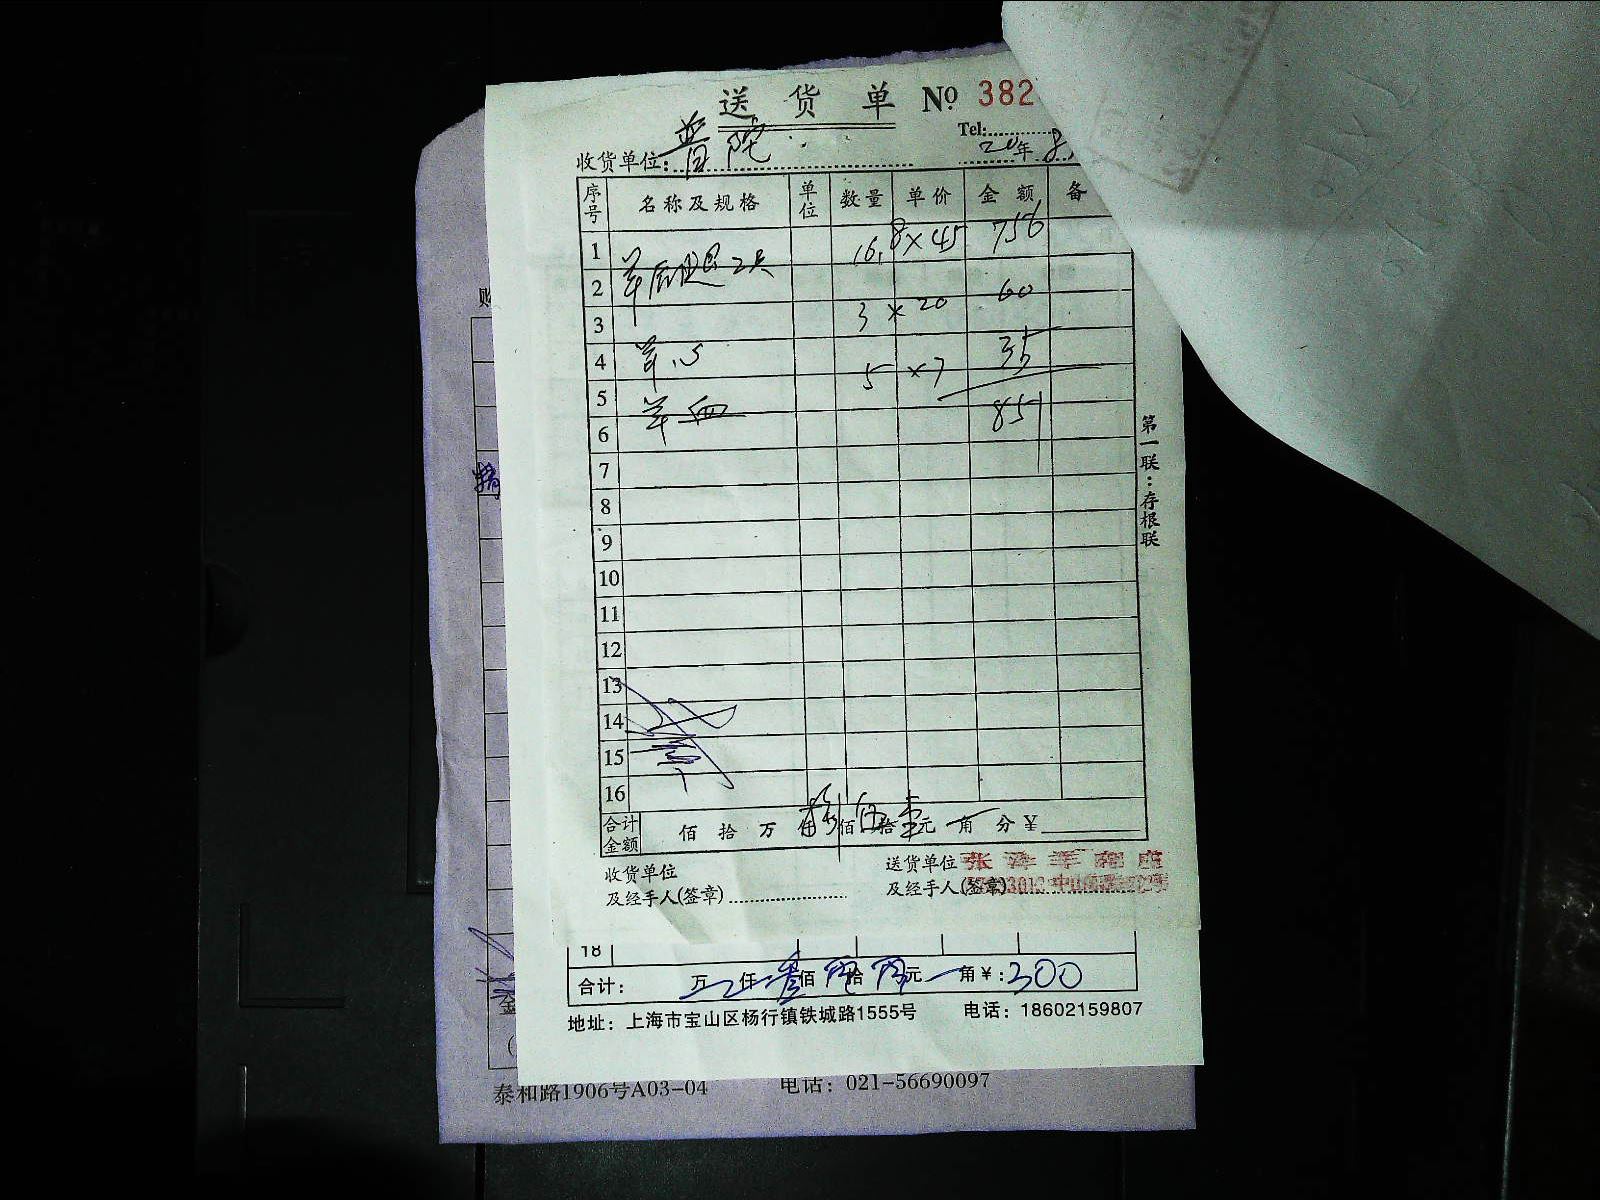 送货单 No 382
Tel:
收货单位: 普陀 20年 8
序号 名称及规格 单位 数量 单价 金额 备
1 16.8×45 756
2 羊后腿 2只
3 3×20 60
4 羊心 35
5 5×7
6 羊血 851
7
8
9
10
11
12
13
14
15
16
合计金额 佰拾万仟捌佰伍拾壹元角分¥
收货单位 送货单位
及经手人(签章) 及经手人(签章)
第一联：存根联
购
18
合计： 万仟叁佰拾元角¥:300
地址：上海市宝山区杨行镇铁城路1555号 电话：18602159807
泰和路1906号A03-04 电话：021-56690097